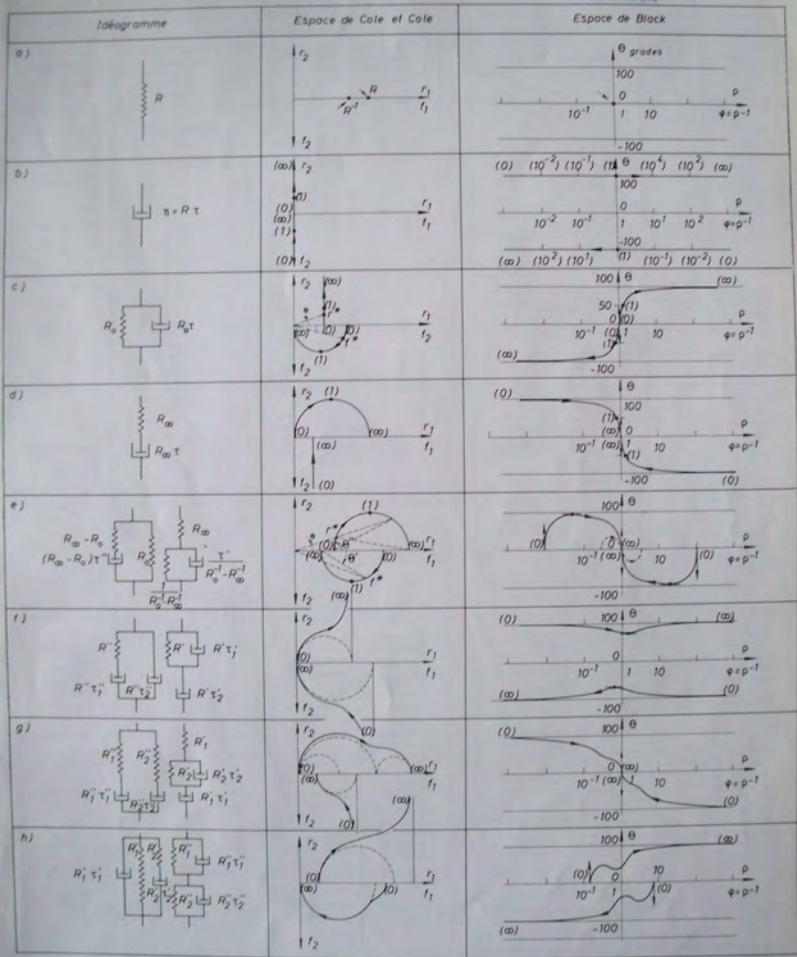 Idéogramme Espace de Cole et Cole Espace de Black
a)
R
r₂
R⁻¹ R r₁
f₁
f₂
θ grades
100
0 ρ
10⁻¹ 1 10 φ=ρ⁻¹
-100
b)
η = R τ
(∞) r₂
(1)
(0) r₁
(∞) f₁
(1)
(0) f₂
(0) (10⁻²) (10⁻¹) (1) θ (10²) (∞)
100
0 ρ
10⁻² 10⁻¹ 1 10¹ 10² φ=ρ⁻¹
-100
(∞) (10²) (10¹) (1) (10⁻¹) (10⁻²) (0)
c)
R₀ R₀τ
r₂ (∞)
(1)
r*
(∞) (0) (0) r₁
f₂
f*
(1)
f₂
100 θ (∞)
50 (1)
0 (0) ρ
10⁻¹ (0) 1 10 φ=ρ⁻¹
(1)
(∞) -100
d)
R∞
R∞ τ
r₂ (1)
(0) (∞) r₁
(∞) f₁
f₂ (0)
(0) θ
100
(1)
(∞) 0 ρ
10⁻¹ (∞) 1 10 φ=ρ⁻¹
(1)
-100 (0)
e)
R∞ - R₀ R∞
(R∞ - R₀)τ'' R₀ τ'
R₀⁻¹-R∞⁻¹
1
R₀⁻¹-R∞⁻¹
r₂ (1)
r*
(0) θ (∞) r₁
(∞) θ' (0) f₁
f*
f₂ (1)
100 θ
(0) 0 (∞) (0) ρ
10⁻¹ (∞) 1 10 φ=ρ⁻¹
-100
f)
R'' R' R'τ₁'
R''τ₁'' R''τ₂'' R'τ₂'
(∞)
r₂
(0) r₁
(∞) f₁
f₂ (0)
(0) 100 θ (∞)
0 ρ
10⁻¹ 1 10 φ=ρ⁻¹
(∞) -100 (0)
g)
R₁'' R₂'' R₁'
R₂' R₂'τ₂'
R₁''τ₁'' R₂''τ₂'' R₁'τ₁'
r₂
(0) (∞) r₁
(∞) f₁
f₂ (0)
(0) 100 θ
0 (∞) ρ
10⁻¹ (∞) 1 10 φ=ρ⁻¹
-100 (0)
h)
R₁' R₂' R₁'' R₁''τ₁''
R₁'τ₁' R₂'τ₂' R₂'' R₂''τ₂''
r₂ (∞)
(0) r₁
(∞) (0) f₁
f₂
100 θ (∞)
(0) 0 10 ρ
10⁻¹ 1 (0) φ=ρ⁻¹
(∞) -100